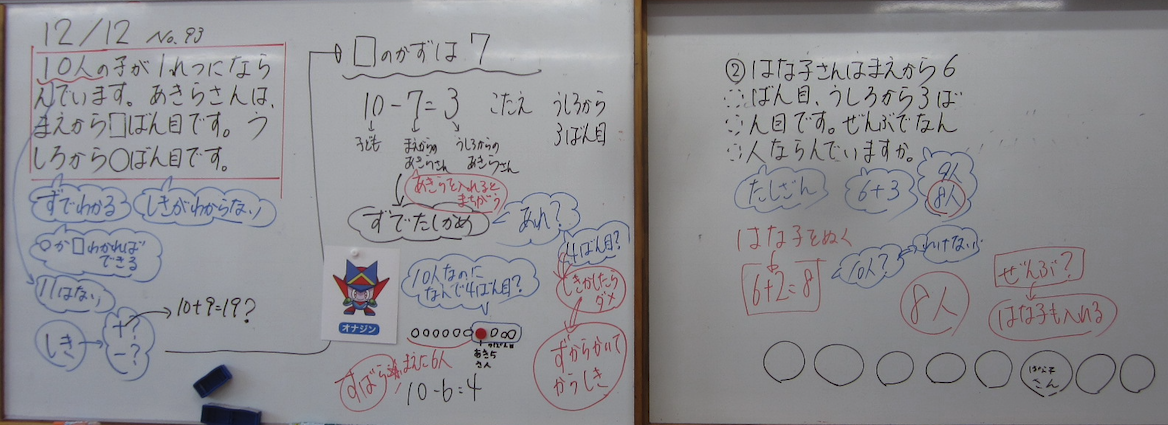 12/12 No.93
10人の子が1れつになら
んでいます。あきらさんは、
まえから□ばん目です。う
しろから○ばん目です。
ずでわかる
しきがわからない
○か□わかれば
できる
11はない
しき
+?
-?
10+9=19?
□のかずは7
10-7=3 こたえ うしろから
3ばん目
子ども
まえからの
あきらさん
うしろからの
あきらさん
あきらを入れると
まちがう
ずでたしかめ
あれ?
4ばん目?
10人なのに
なんで4ばん目?
しきかしたら
ダメ
オナジン
あきら
さん
まえに6人
10-6=4
ずからかいて
からしき
②はな子さんはまえから6
ばん目、うしろから3ば
ん目です。ぜんぶでなん
人ならんでいますか。
たしざん
6+3
9人
8人
はな子をぬく
6+2=8
10人?
われない
8人
ぜんぶ?
はな子も入れる
はな子
さん